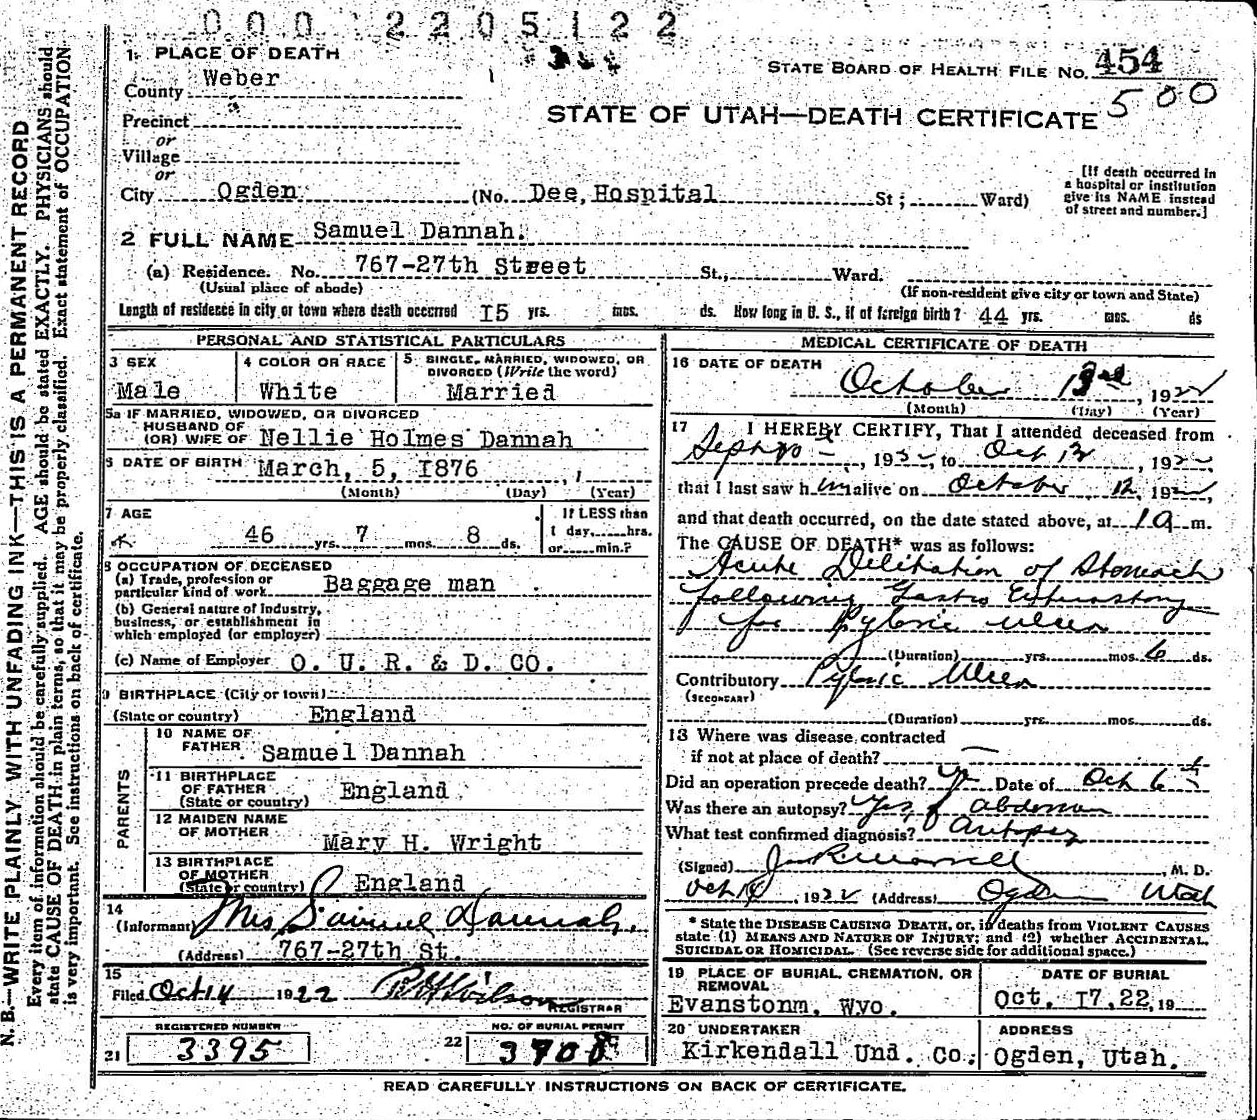 0 0 0 2 2 0 5 1 2 2
1. PLACE OF DEATH
STATE BOARD OF HEALTH FILE NO. 454
500
County Weber
STATE OF UTAH—DEATH CERTIFICATE
Precinct
or
Village
or
City Ogden (No. Dee, Hospital St ; Ward)
[If death occurred in
a hospital or institution
give its NAME instead
of street and number.]
2 FULL NAME Samuel Dannah.
(a) Residence. No. 767-27th Street St., Ward.
(Usual place of abode) (If non-resident give city or town and State)
Length of residence in city or town where death occurred 15 yrs. mos. ds. How long in U. S., if of foreign birth? 44 yrs. mos. ds
PERSONAL AND STATISTICAL PARTICULARS
3 SEX Male
4 COLOR OR RACE White
5 SINGLE, MARRIED, WIDOWED, OR
DIVORCED (Write the word)
Married
5a IF MARRIED, WIDOWED, OR DIVORCED
HUSBAND OF
(OR) WIFE OF Nellie Holmes Dannah
6 DATE OF BIRTH March, 5, 1876
(Month) (Day) (Year)
7 AGE
46 yrs. 7 mos. 8 ds.
If LESS than
1 day, hrs.
or min.?
8 OCCUPATION OF DECEASED
(a) Trade, profession or
particular kind of work Baggage man
(b) General nature of Industry,
business, or establishment in
which employed (or employer)
(c) Name of Employer O. U. R. & D. CO.
9 BIRTHPLACE (City or town)
(State or country) England
PARENTS
10 NAME OF
FATHER Samuel Dannah
11 BIRTHPLACE
OF FATHER
(State or country) England
12 MAIDEN NAME
OF MOTHER Mary H. Wright
13 BIRTHPLACE
OF MOTHER
(State or country) England
14
(Informant) Mrs Samuel Dannah,
(Address) 767-27th St.
15
Filed Oct 14 1922
REGISTRAR
REGISTERED NUMBER
21 3395
NO. OF BURIAL PERMIT
22 3708
MEDICAL CERTIFICATE OF DEATH
16 DATE OF DEATH
October 13rd, 1922
(Month) (Day) (Year)
17 I HEREBY CERTIFY, That I attended deceased from
, 192 , to Oct 12, 1922,
that I last saw him alive on October 12, 1922,
and that death occurred, on the date stated above, at 1 a m.
The CAUSE OF DEATH* was as follows:
Acute Delitation of Stomach
following Gastro
for Pyloric ulcer
(Duration) yrs. mos. 6 ds.
Contributory Pyloric Ulcer
(SECONDARY)
(Duration) yrs. mos. ds.
18 Where was disease contracted
if not at place of death?
Did an operation precede death? Yes Date of Oct 6th
Was there an autopsy? Yes, of abdomen
What test confirmed diagnosis? Autopsy
(Signed) , M. D.
Oct 1922 (Address) Ogden Utah
* State the DISEASE CAUSING DEATH, or, in deaths from VIOLENT CAUSES
state (1) MEANS AND NATURE OF INJURY; and (2) whether ACCIDENTAL,
SUICIDAL OR HOMICIDAL. (See reverse side for additional space.)
19 PLACE OF BURIAL, CREMATION, OR
REMOVAL
Evanstonm, Wyo.
DATE OF BURIAL
Oct. 17,22, 19
20 UNDERTAKER
Kirkendall Und. Co,
ADDRESS
Ogden, Utah.
READ CAREFULLY INSTRUCTIONS ON BACK OF CERTIFICATE.
N. B.—WRITE PLAINLY WITH UNFADING INK—THIS IS A PERMANENT RECORD
Every item of information should be carefully supplied. AGE should be stated EXACTLY. PHYSICIANS should
state CAUSE OF DEATH in plain terms, so that it may be properly classified. Exact statement of OCCUPATION
is very important. See instructions on back of certificate.